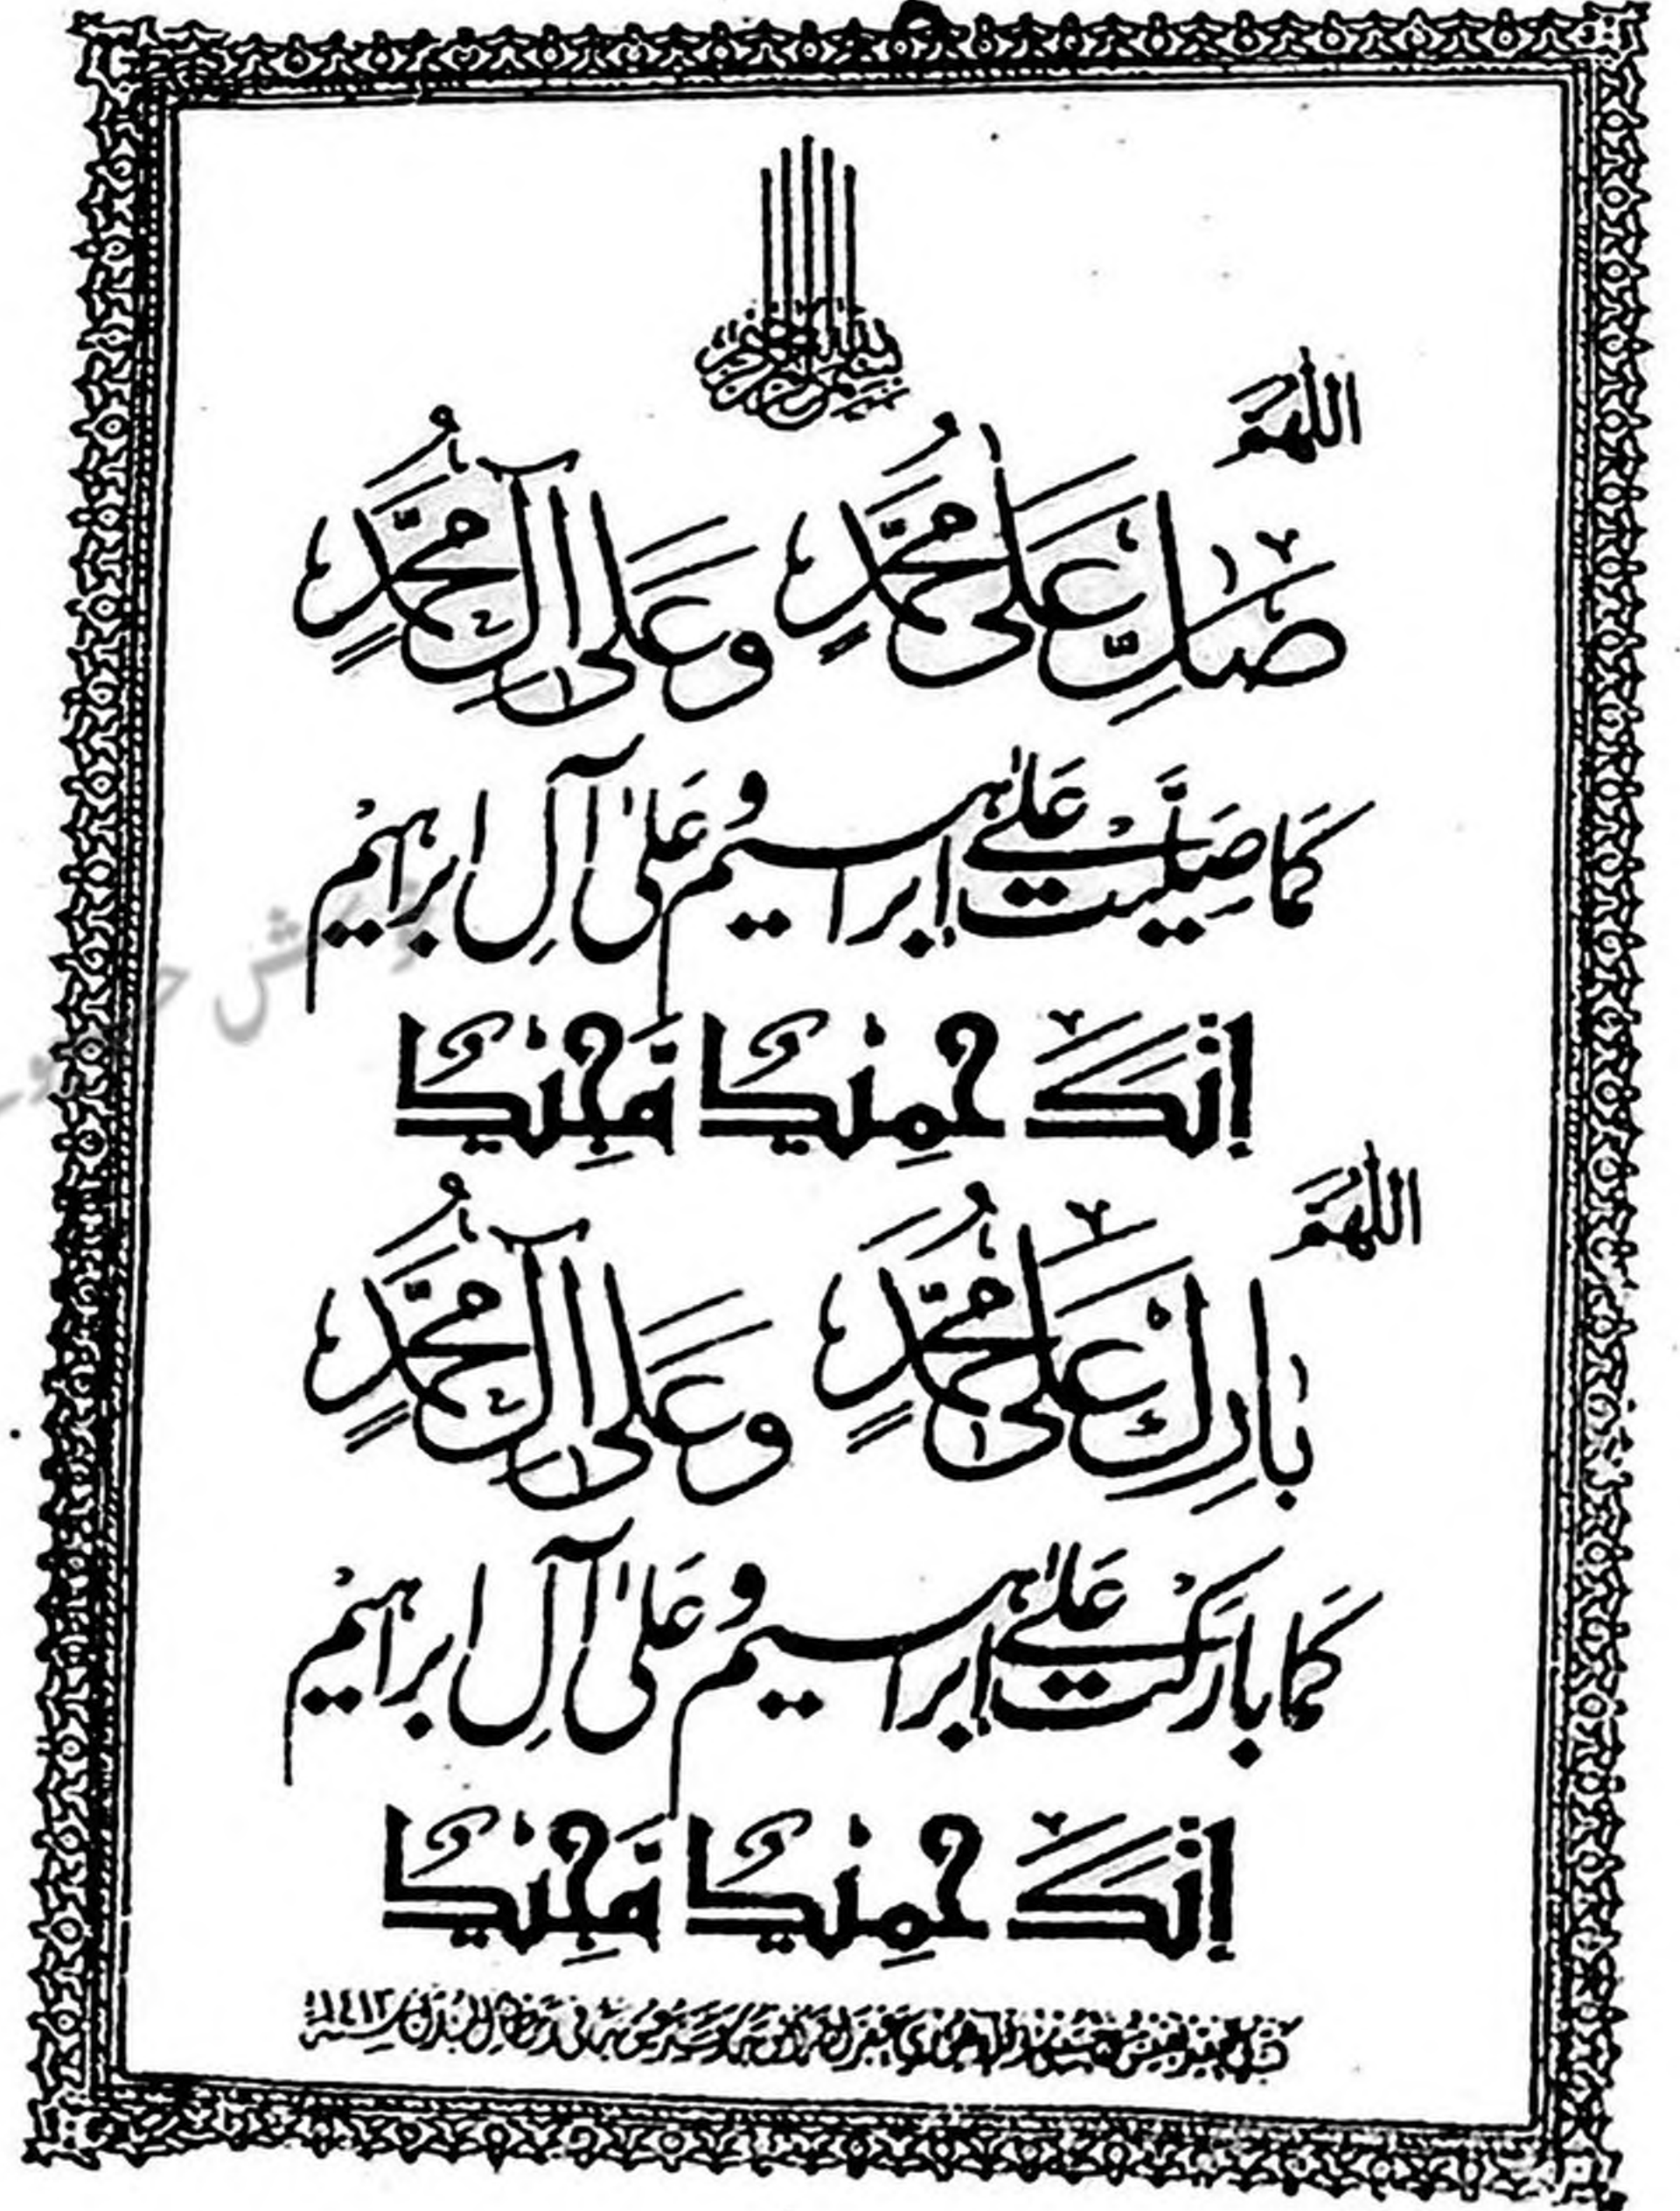 بسم الله الرحمن الرحيم
اللّٰهمَّ
صَلِّ عَلىٰ مُحَمَّدٍ وَعَلىٰ آلِ مُحَمَّدٍ
كَمَا صَلَّيْتَ عَلىٰ إبراهيمَ وَعَلىٰ آلِ ابراهيم
إنَّكَ حَمِيْدٌ مَّجِيْدٌ
اللّٰهمَّ
بَارِكْ عَلىٰ مُحَمَّدٍ وَعَلىٰ آلِ مُحَمَّدٍ
كَمَا بَارَكْتَ عَلىٰ إبراهيمَ وَعَلىٰ آلِ ابراهيم
إنَّكَ حَمِيْدٌ مَّجِيْدٌ